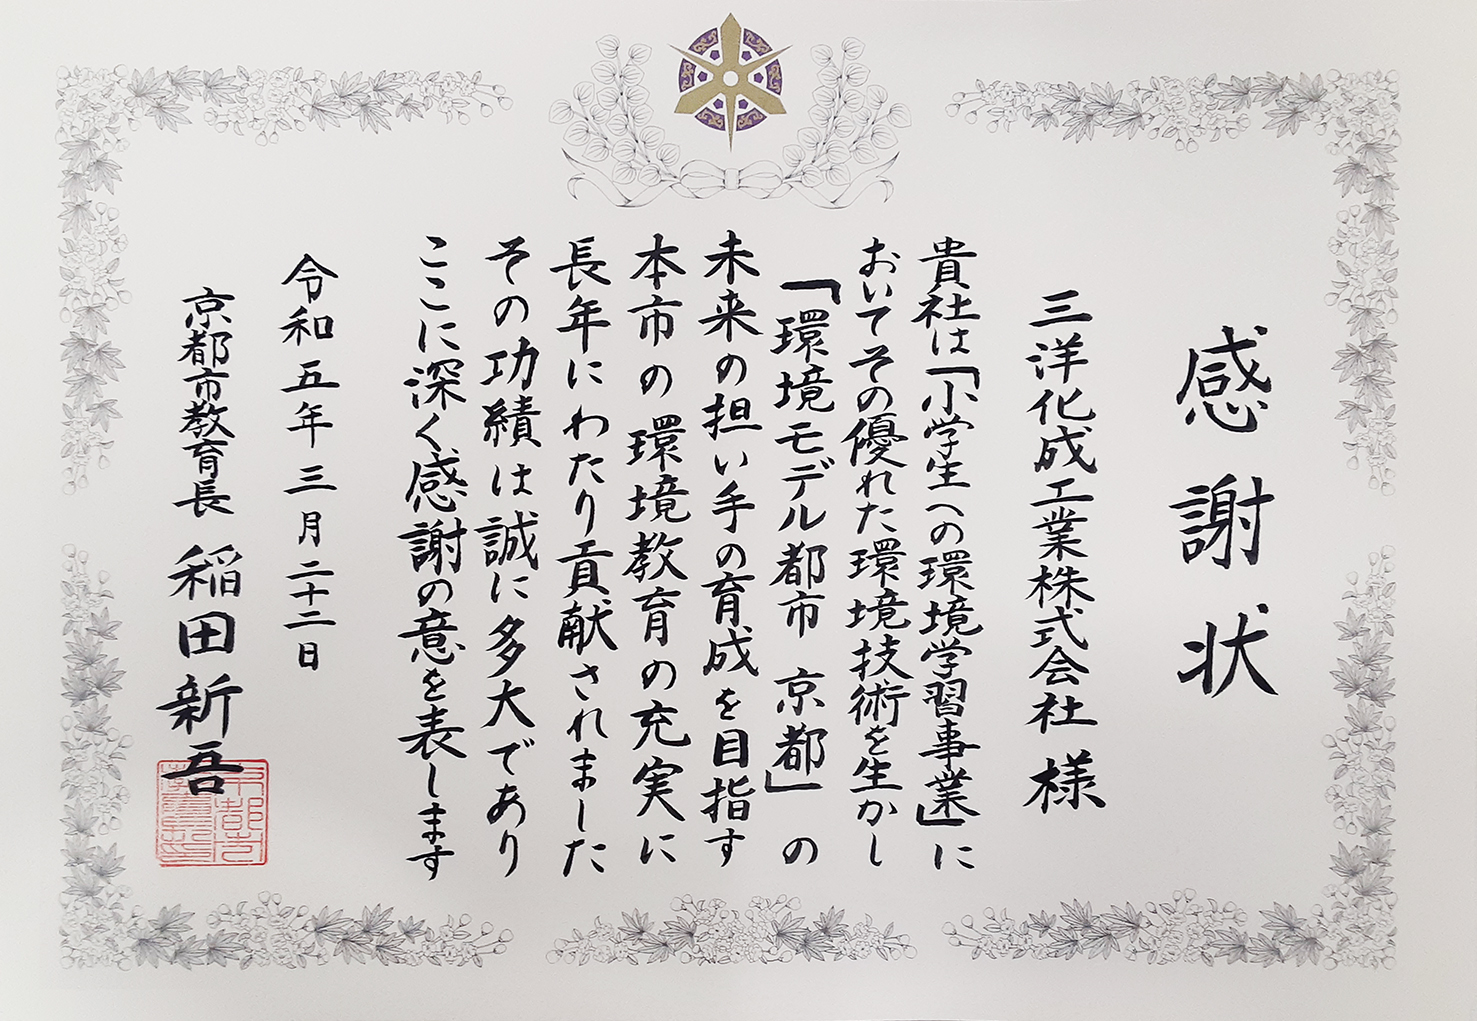 感謝状
三洋化成工業株式会社 様
貴社は「小学生への環境学習事業」に
おいてその優れた環境技術を生かし
「環境モデル都市 京都」の
未来の担い手の育成を目指す
本市の環境教育の充実に
長年にわたり貢献されました
その功績は誠に多大であり
ここに深く感謝の意を表します
令和五年三月二十二日
京都市教育長 稲田新吾